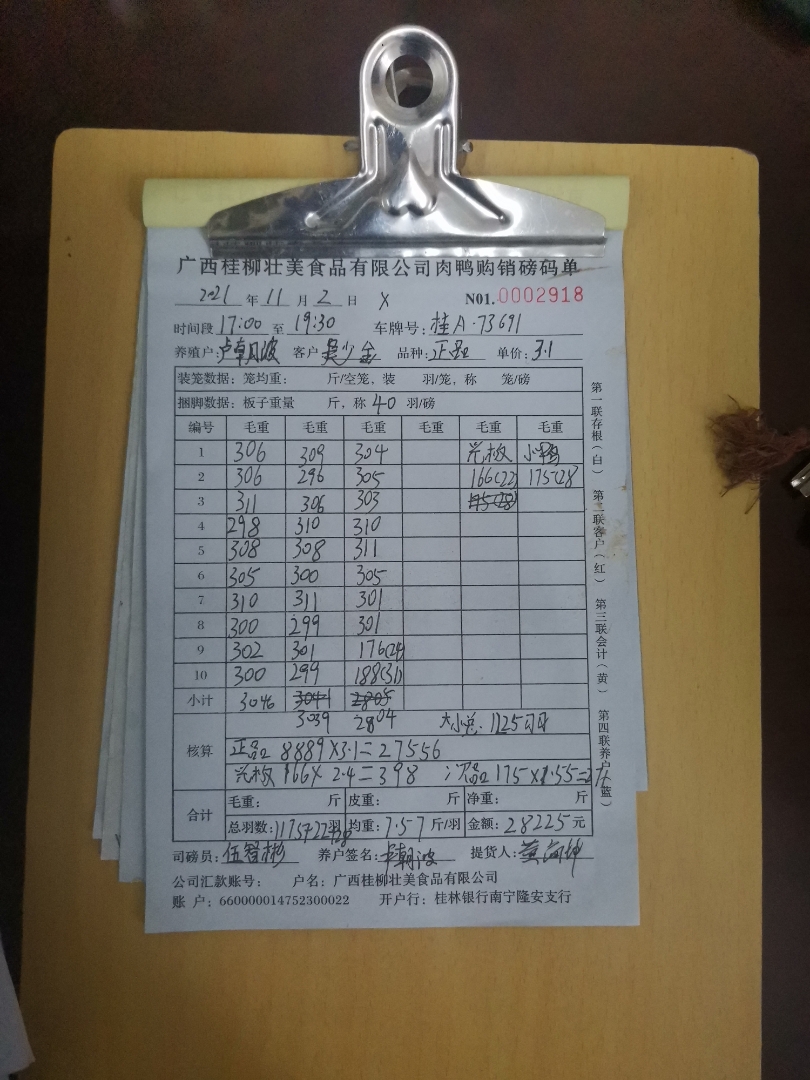 广西桂柳壮美食品有限公司肉鸭购销磅码单
2021 年 11 月 2 日 X N01.0002918
时间段 17:00 至 19:30 车牌号: 桂A·73691
养殖户: 卢朝波 客户 吴少金 品种: 正品 单价: 3.1
装笼数据: 笼均重: 斤/空笼, 装 羽/笼, 称 笼/磅
捆脚数据: 板子重量 斤, 称 40 羽/磅
编号 毛重 毛重 毛重 毛重 毛重 毛重
1 306 309 304 光板 小鸭
2 306 296 305 166(22) 175(28
3 311 306 303 175(28)
4 298 310 310
5 308 308 311
6 305 300 305
7 310 311 301
8 300 299 301
9 302 301 176(24)
10 300 299 188(31)
小计 3046 3041 2805
3039 2804 大小总: 1125羽
核算 正品 8889×3.1=27556
光板 166×2.4=398 次品 175×1.55=271
合计 毛重: 斤 皮重: 斤 净重: 斤
总羽数: 1175+22+28 羽 均重: 7.57 斤/羽 金额: 28225 元
司磅员: 伍智彬 养户签名: 卢朝波 提货人:
公司汇款账号: 户名: 广西桂柳壮美食品有限公司
账 户: 660000014752300022 开户行: 桂林银行南宁隆安支行
第一联存根(白) 第二联客户(红) 第三联会计(黄) 第四联养户(蓝)